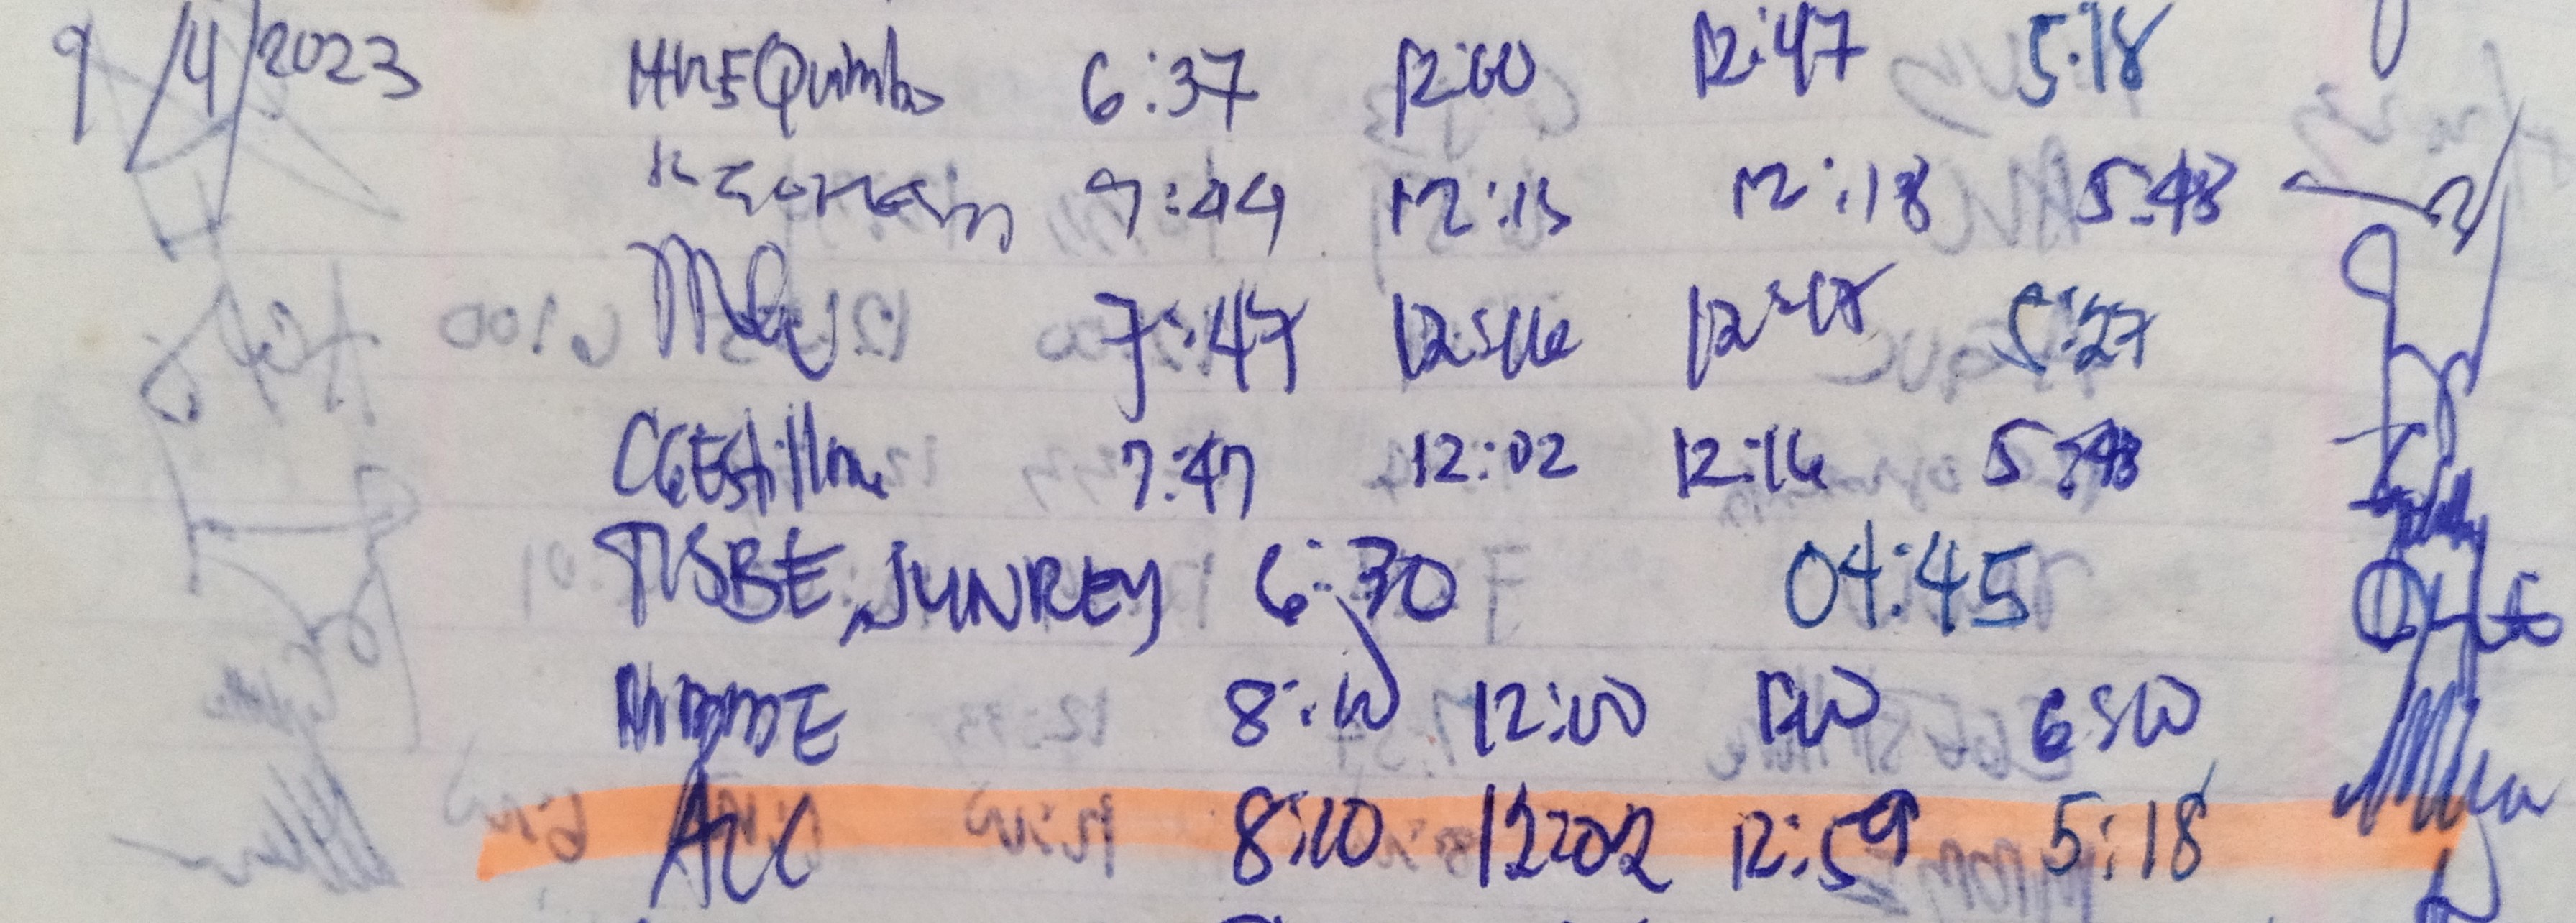 9/4/2023 HNEQuimbo 6:37 12:00 12:47 5:18
7:44 12:15 12:18 5:48
7:47 12:16 12:18 5:27
CGEstillore 7:47 12:02 12:16 5:48
TISBE, JUNREY 6:30 04:45
8:10 12:00 6:00
ACC 8:10 12:02 12:59 5:18